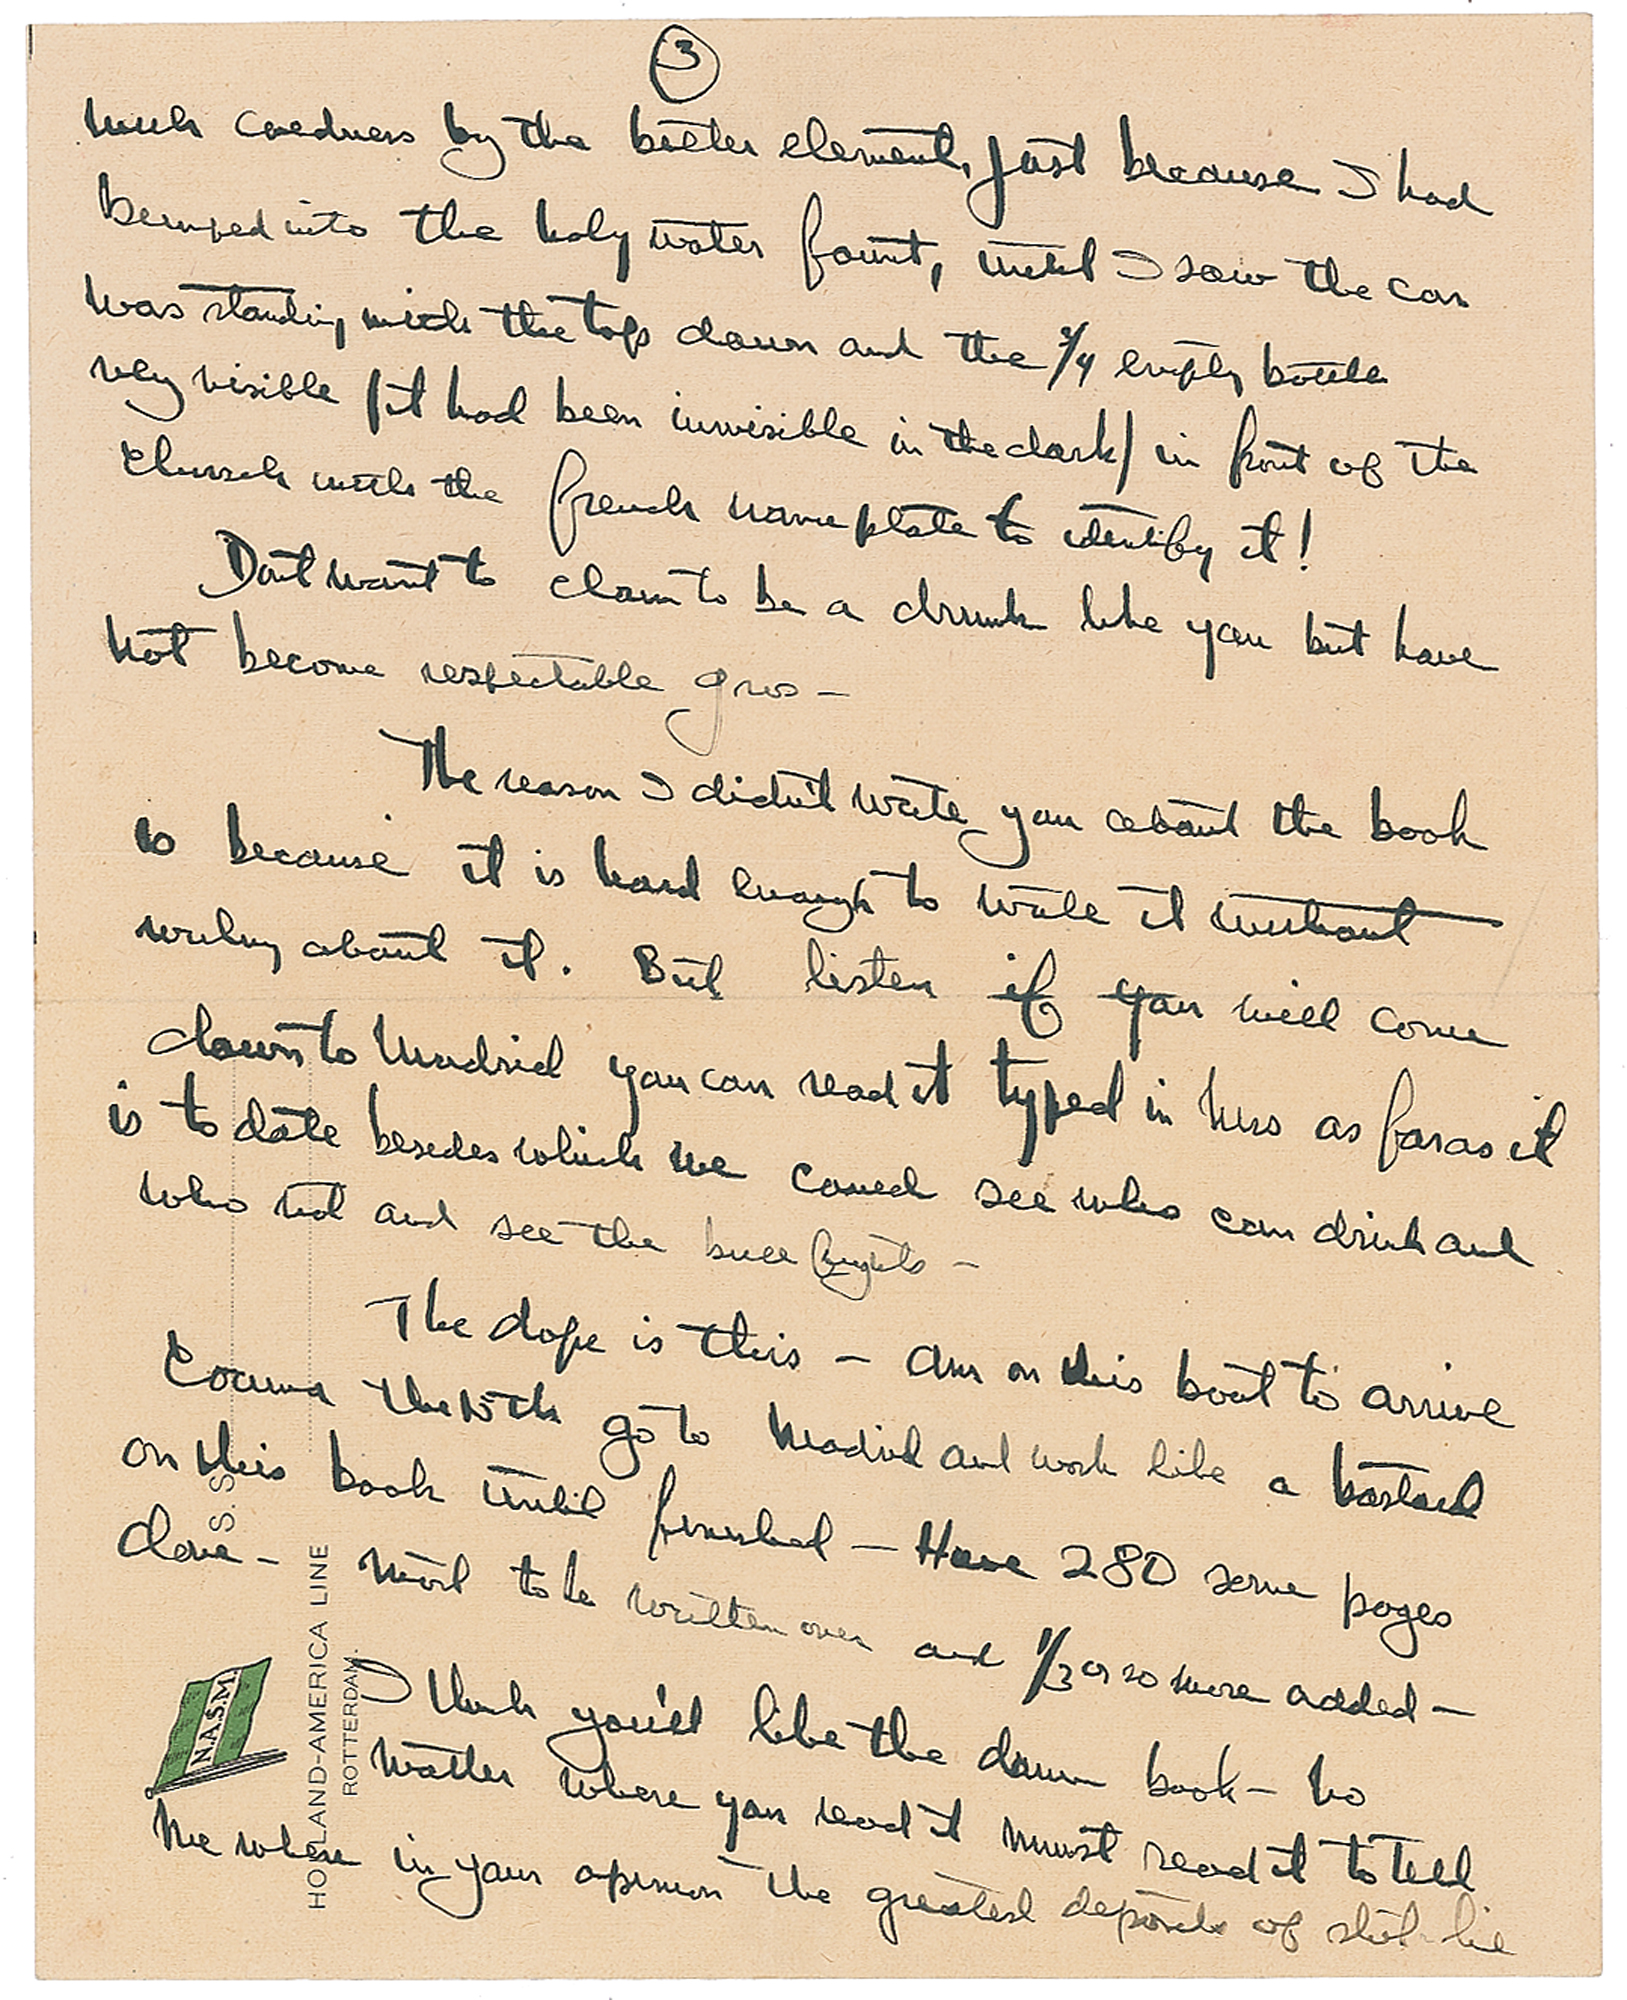 3
much coldness by the better element, just because I had
bumped into the holy water fount, until I saw the car
was standing with the top down and the 3/4 empty bottle
very visible (it had been invisible in the dark) in front of the
church with the french name plate to identify it!
Dont want to claim to be a drunk like you but have
not become respectable gros —
The reason I didn't write you about the book
is because it is hard enough to write it without
writing about it. But listen if you will come
down to Madrid you can read it typed in mss as far as it
is to date besides which we could see who can drink and
who not and see the bull fights —
The dope is this — am on this boat to arrive
Coruna the 15th go to Madrid and work like a bastard
on this book until finished — Have 280 some pages
done — Most to be written over and 1/3 or so more added —
I think you'll like the damn book — no
matter where you read it must read it to tell
me where in your opinion the greatest deposits of shit lie
S.S.
HOLLAND-AMERICA LINE
ROTTERDAM.
N.A.S.M.